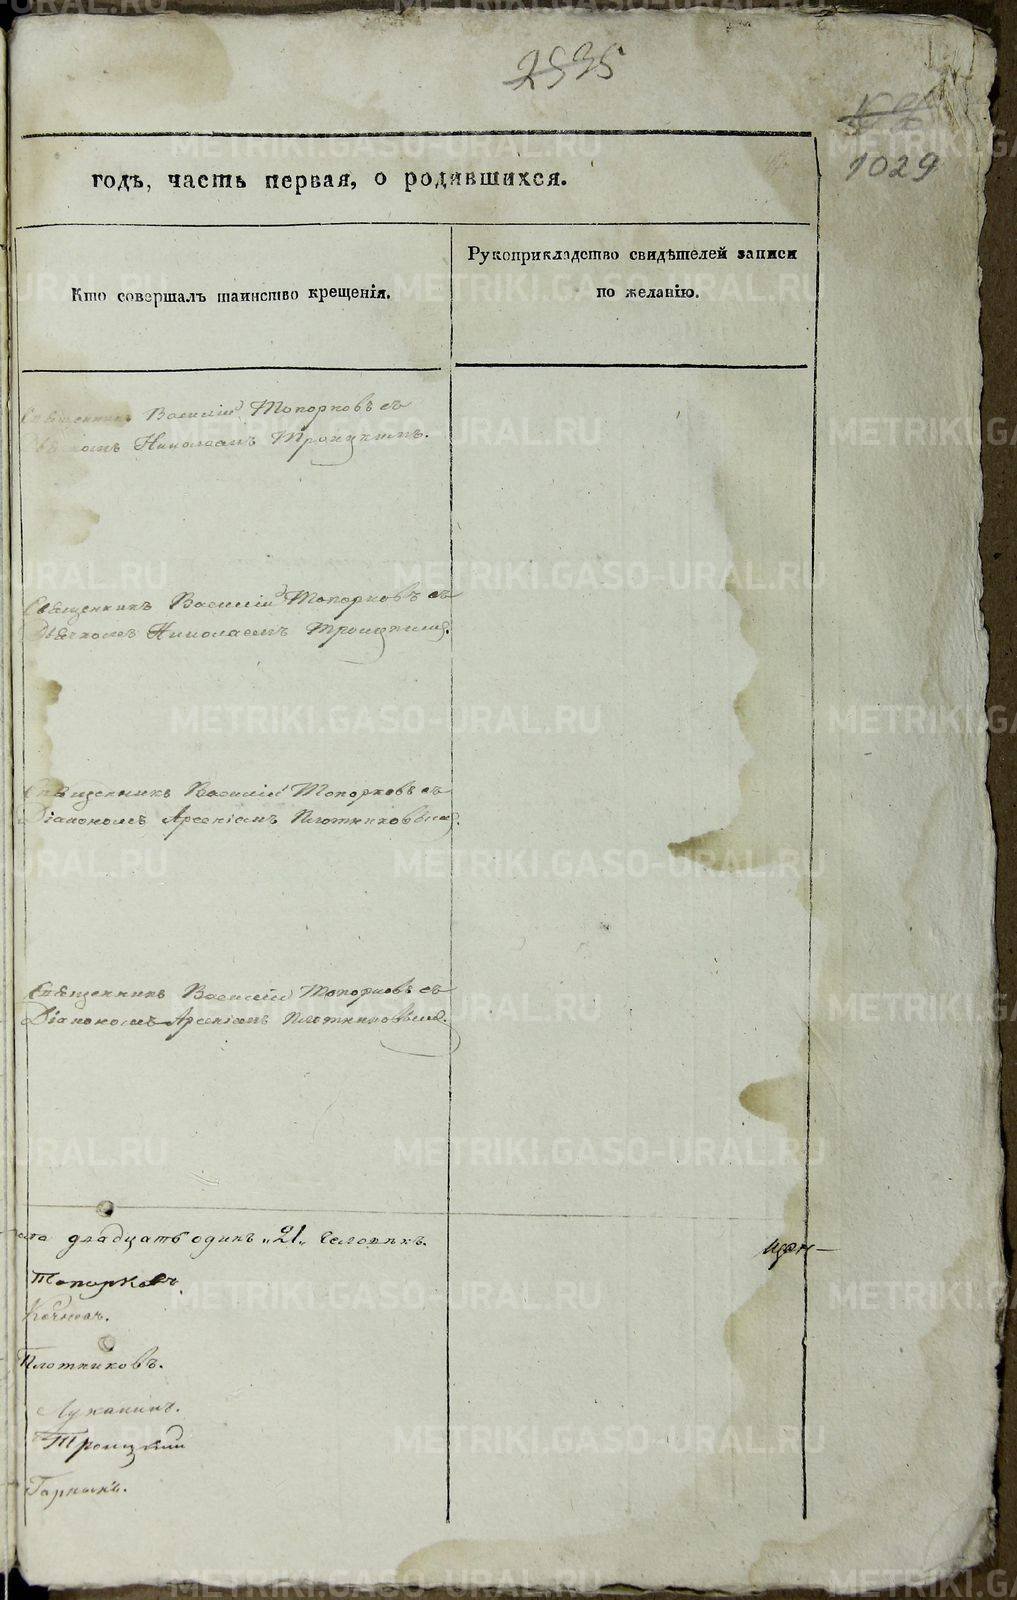 2535
1029
годъ, часть первая, о родившихся.
Кто совершалъ таинство крещенія.
Рукоприкладство свидѣтелей записи
по желанію.
Священникъ Василій Топорковъ съ
Николаемъ Троицкимъ.
Священникъ Василій Топорковъ съ
Дьячкомъ Николаемъ Троицкимъ.
Священникъ Василій Топорковъ съ
Діакономъ Арсеніемъ Плотниковымъ.
Священникъ Василій Топорковъ съ
Діакономъ Арсеніемъ Плотниковымъ.
двадцать одинъ „21„ человѣкъ.
Топорковъ.
Плотниковъ.
Луканинъ.
Троицкій
METRIKI.GASO-URAL.RU